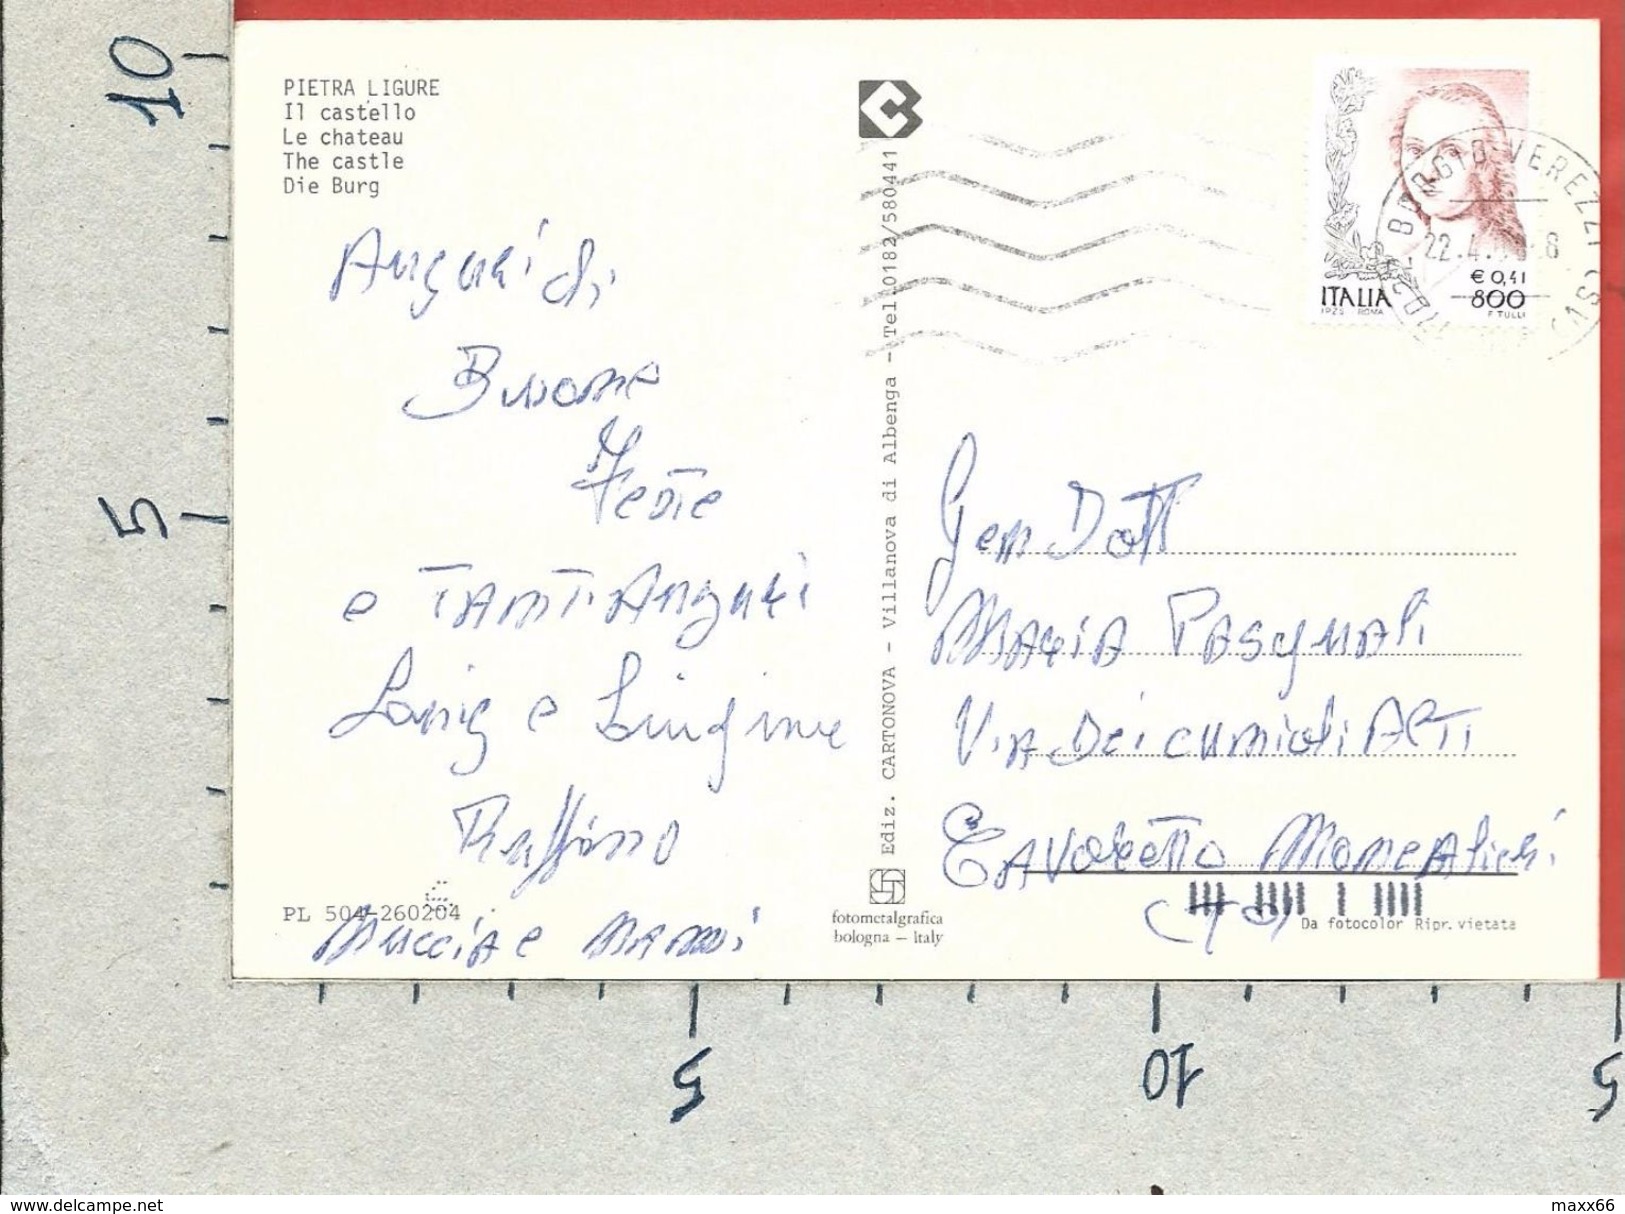 10
5
PIETRA LIGURE
Il castello
Le chateau
The castle
Die Burg
Auguri di
Buone
Feste
e TANTI Auguri
Luigi e Luigina
Ruffino
PL 504-260204
Ediz. CARTONOVA - Villanova di Albenga - Tel. 0182/580441
fotometalgrafica
bologna – italy
BORGIO VEREZZI (SV)
22.4.
ITALIA
€ 0,41
800
I.P.Z.S. ROMA
F. TULLI
Gen Dott
MARIA PASQUALi
ViA Dei
CAVORETTO MONCALieRi
(TO)
Da fotocolor Ripr. vietata
5
10
5
delcampe.net
maxx66